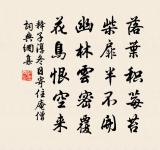 落葉積莓苔
柴扉半不開
幽林雲密覆
花鳥恨空来
釋子淳冬日寄住庵僧
詞典網集